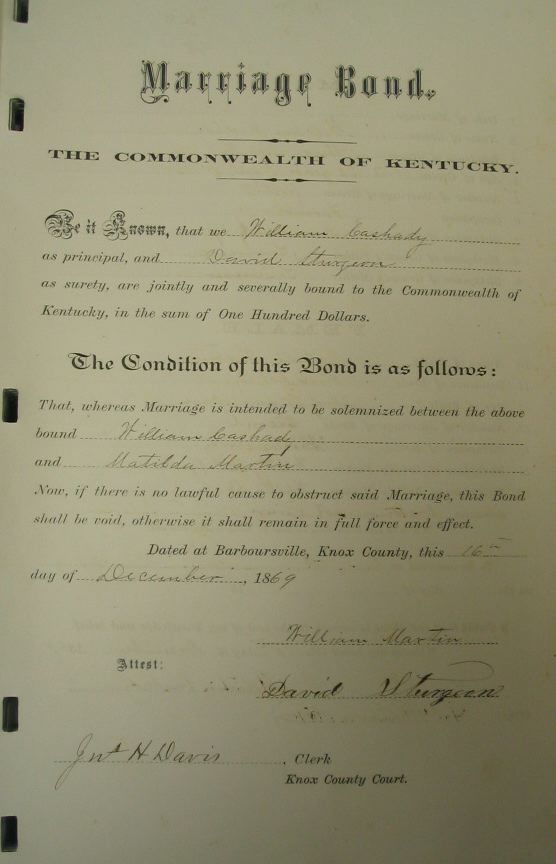 Marriage Bond.
THE COMMONWEALTH OF KENTUCKY.
Be it Known, that we William Cashady
as principal, and David Sturgeon
as surety, are jointly and severally bound to the Commonwealth of
Kentucky, in the sum of One Hundred Dollars.
The Condition of this Bond is as follows:
That, whereas Marriage is intended to be solemnized between the above
bound William Cashady
and Matilda Martin
Now, if there is no lawful cause to obstruct said Marriage, this Bond
shall be void, otherwise it shall remain in full force and effect.
Dated at Barboursville, Knox County, this 16th
day of December, 1869
William Martin
Attest:
David Sturgeon
Jno H Davis, Clerk
Knox County Court.